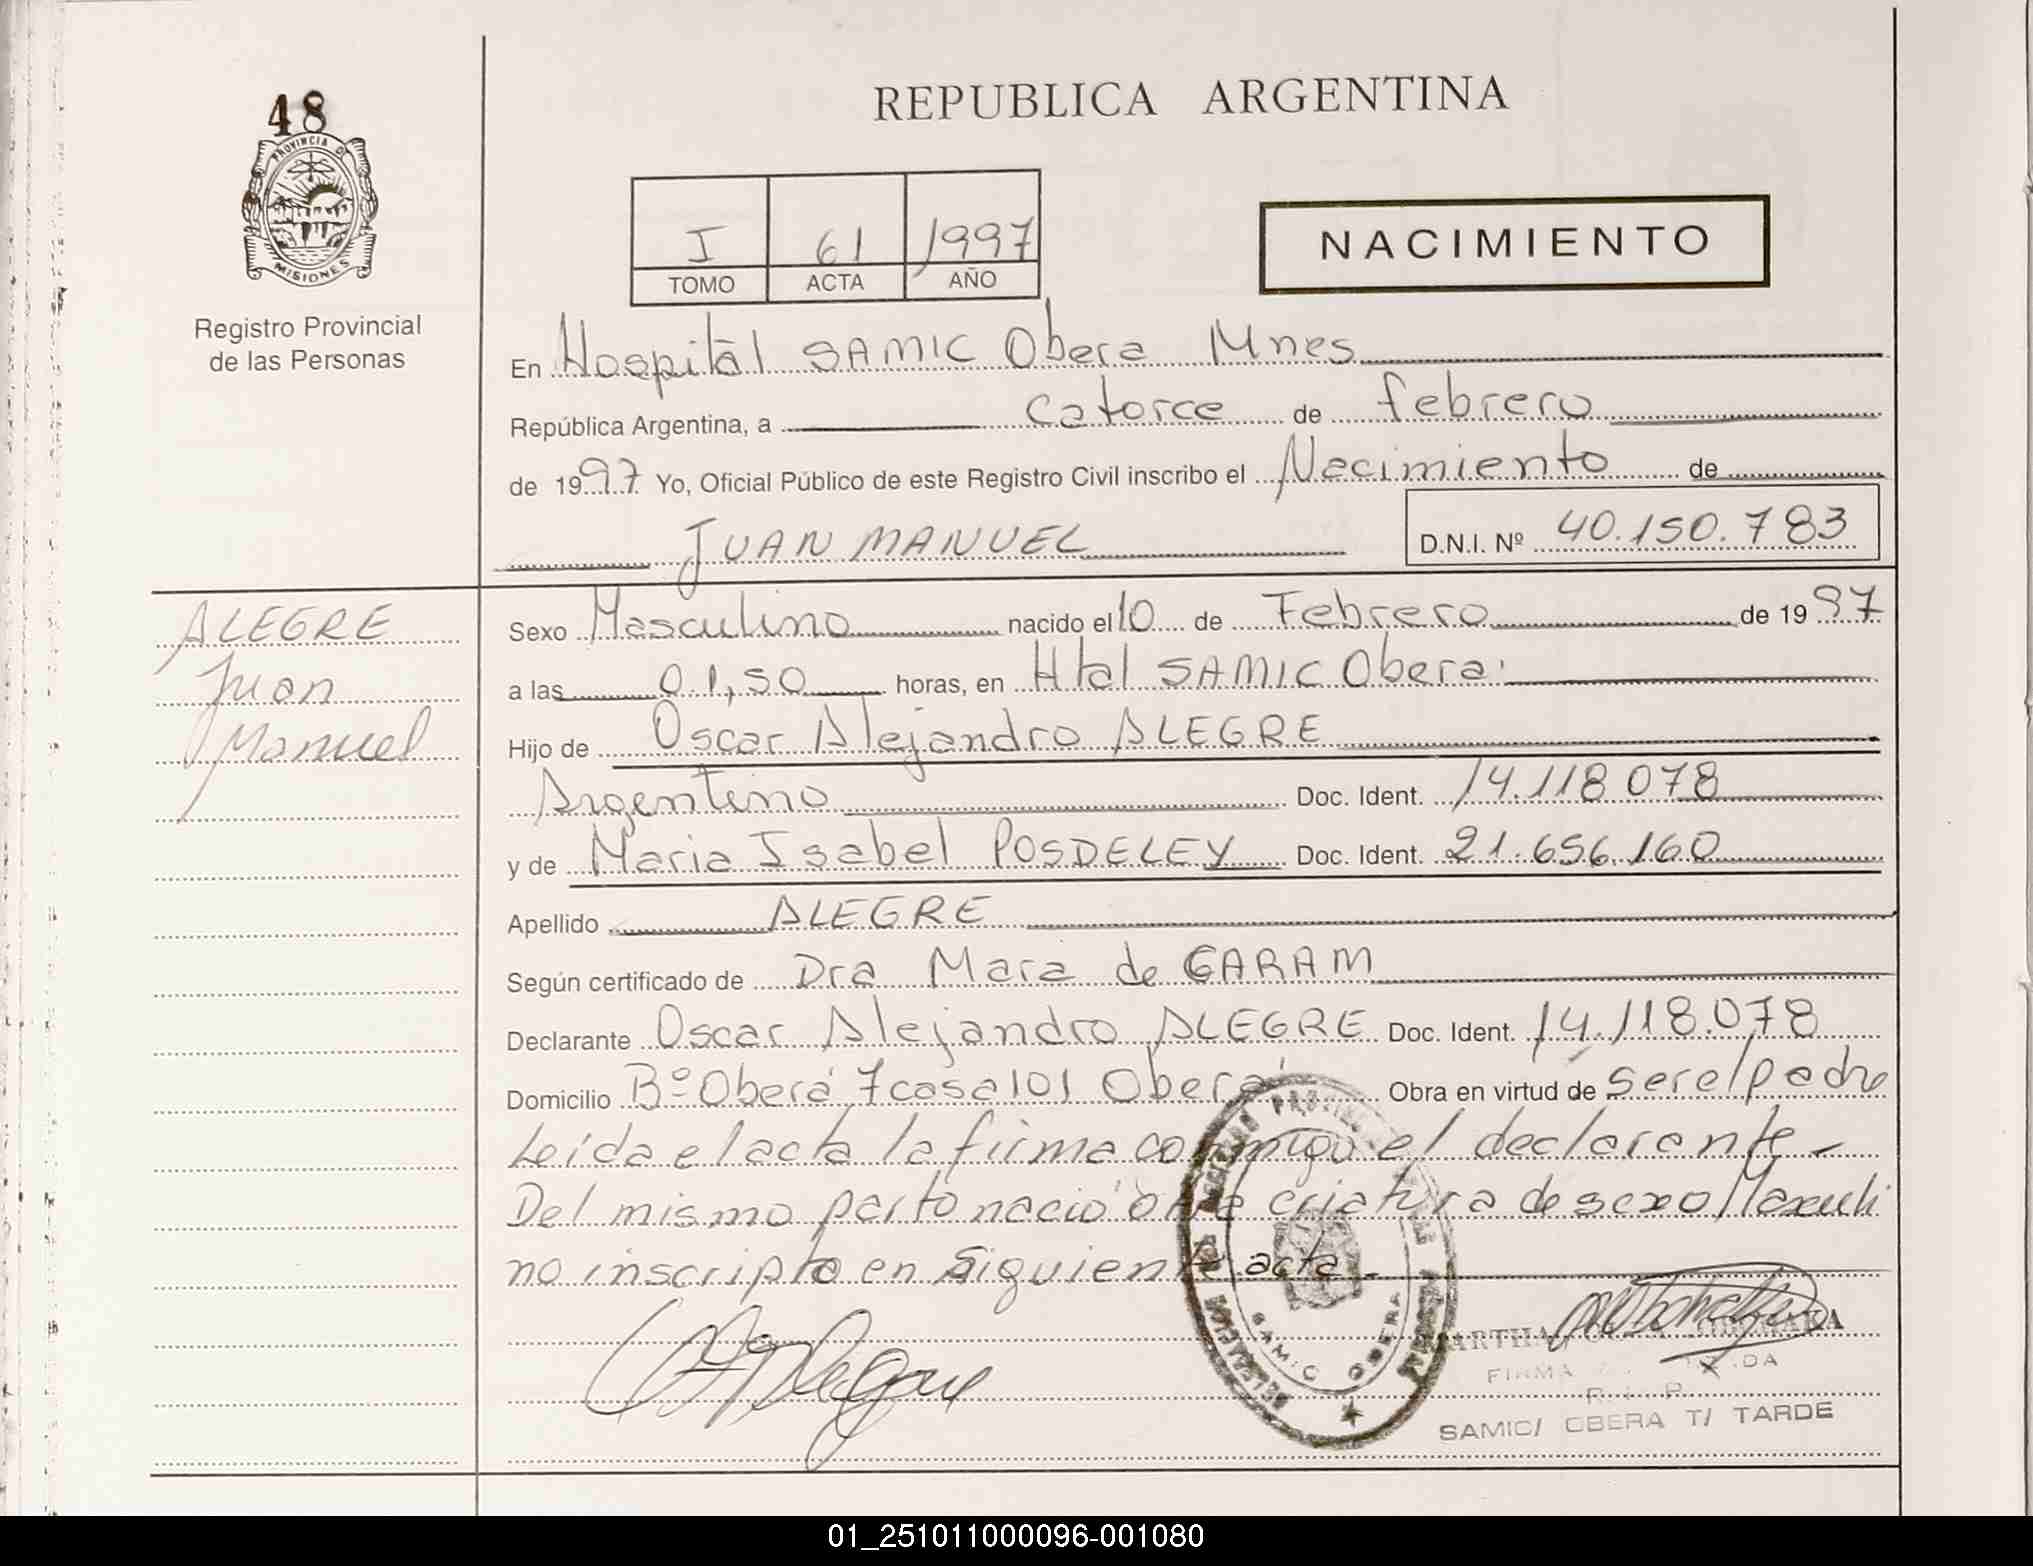 48
PROVINCIA D
MISIONES
Registro Provincial
de las Personas
REPUBLICA ARGENTINA
I 61 1997
TOMO ACTA AÑO
NACIMIENTO
En Hospital SAMIC Obera Mnes
República Argentina, a catorce de febrero
de 1997 Yo, Oficial Público de este Registro Civil inscribo el Nacimiento de
JUAN MANUEL D.N.I. Nº 40.150.783
ALEGRE
Juan
Manuel
Sexo Masculino nacido el 10 de Febrero de 1997
a las 01,50 horas, en Htal SAMIC Obera
Hijo de Oscar Alejandro ALEGRE
Argentino Doc. Ident. 14.118.078
y de Maria Isabel POSDELEY Doc. Ident. 21.656.160
Apellido ALEGRE
Según certificado de Dra Mara de GARAM
Declarante Oscar Alejandro ALEGRE Doc. Ident. 14.118.078
Domicilio Bº Oberá 7 casa 101 Oberá Obra en virtud de ser el padre
Leída el acta la firma conmigo el declarante –
Del mismo parto nació otra criatura de sexo Masculi
no inscripto en siguiente acta –
SAMIC OBERA
FIRMA
SAMIC/ OBERA T/ TARDE
01_251011000096-001080